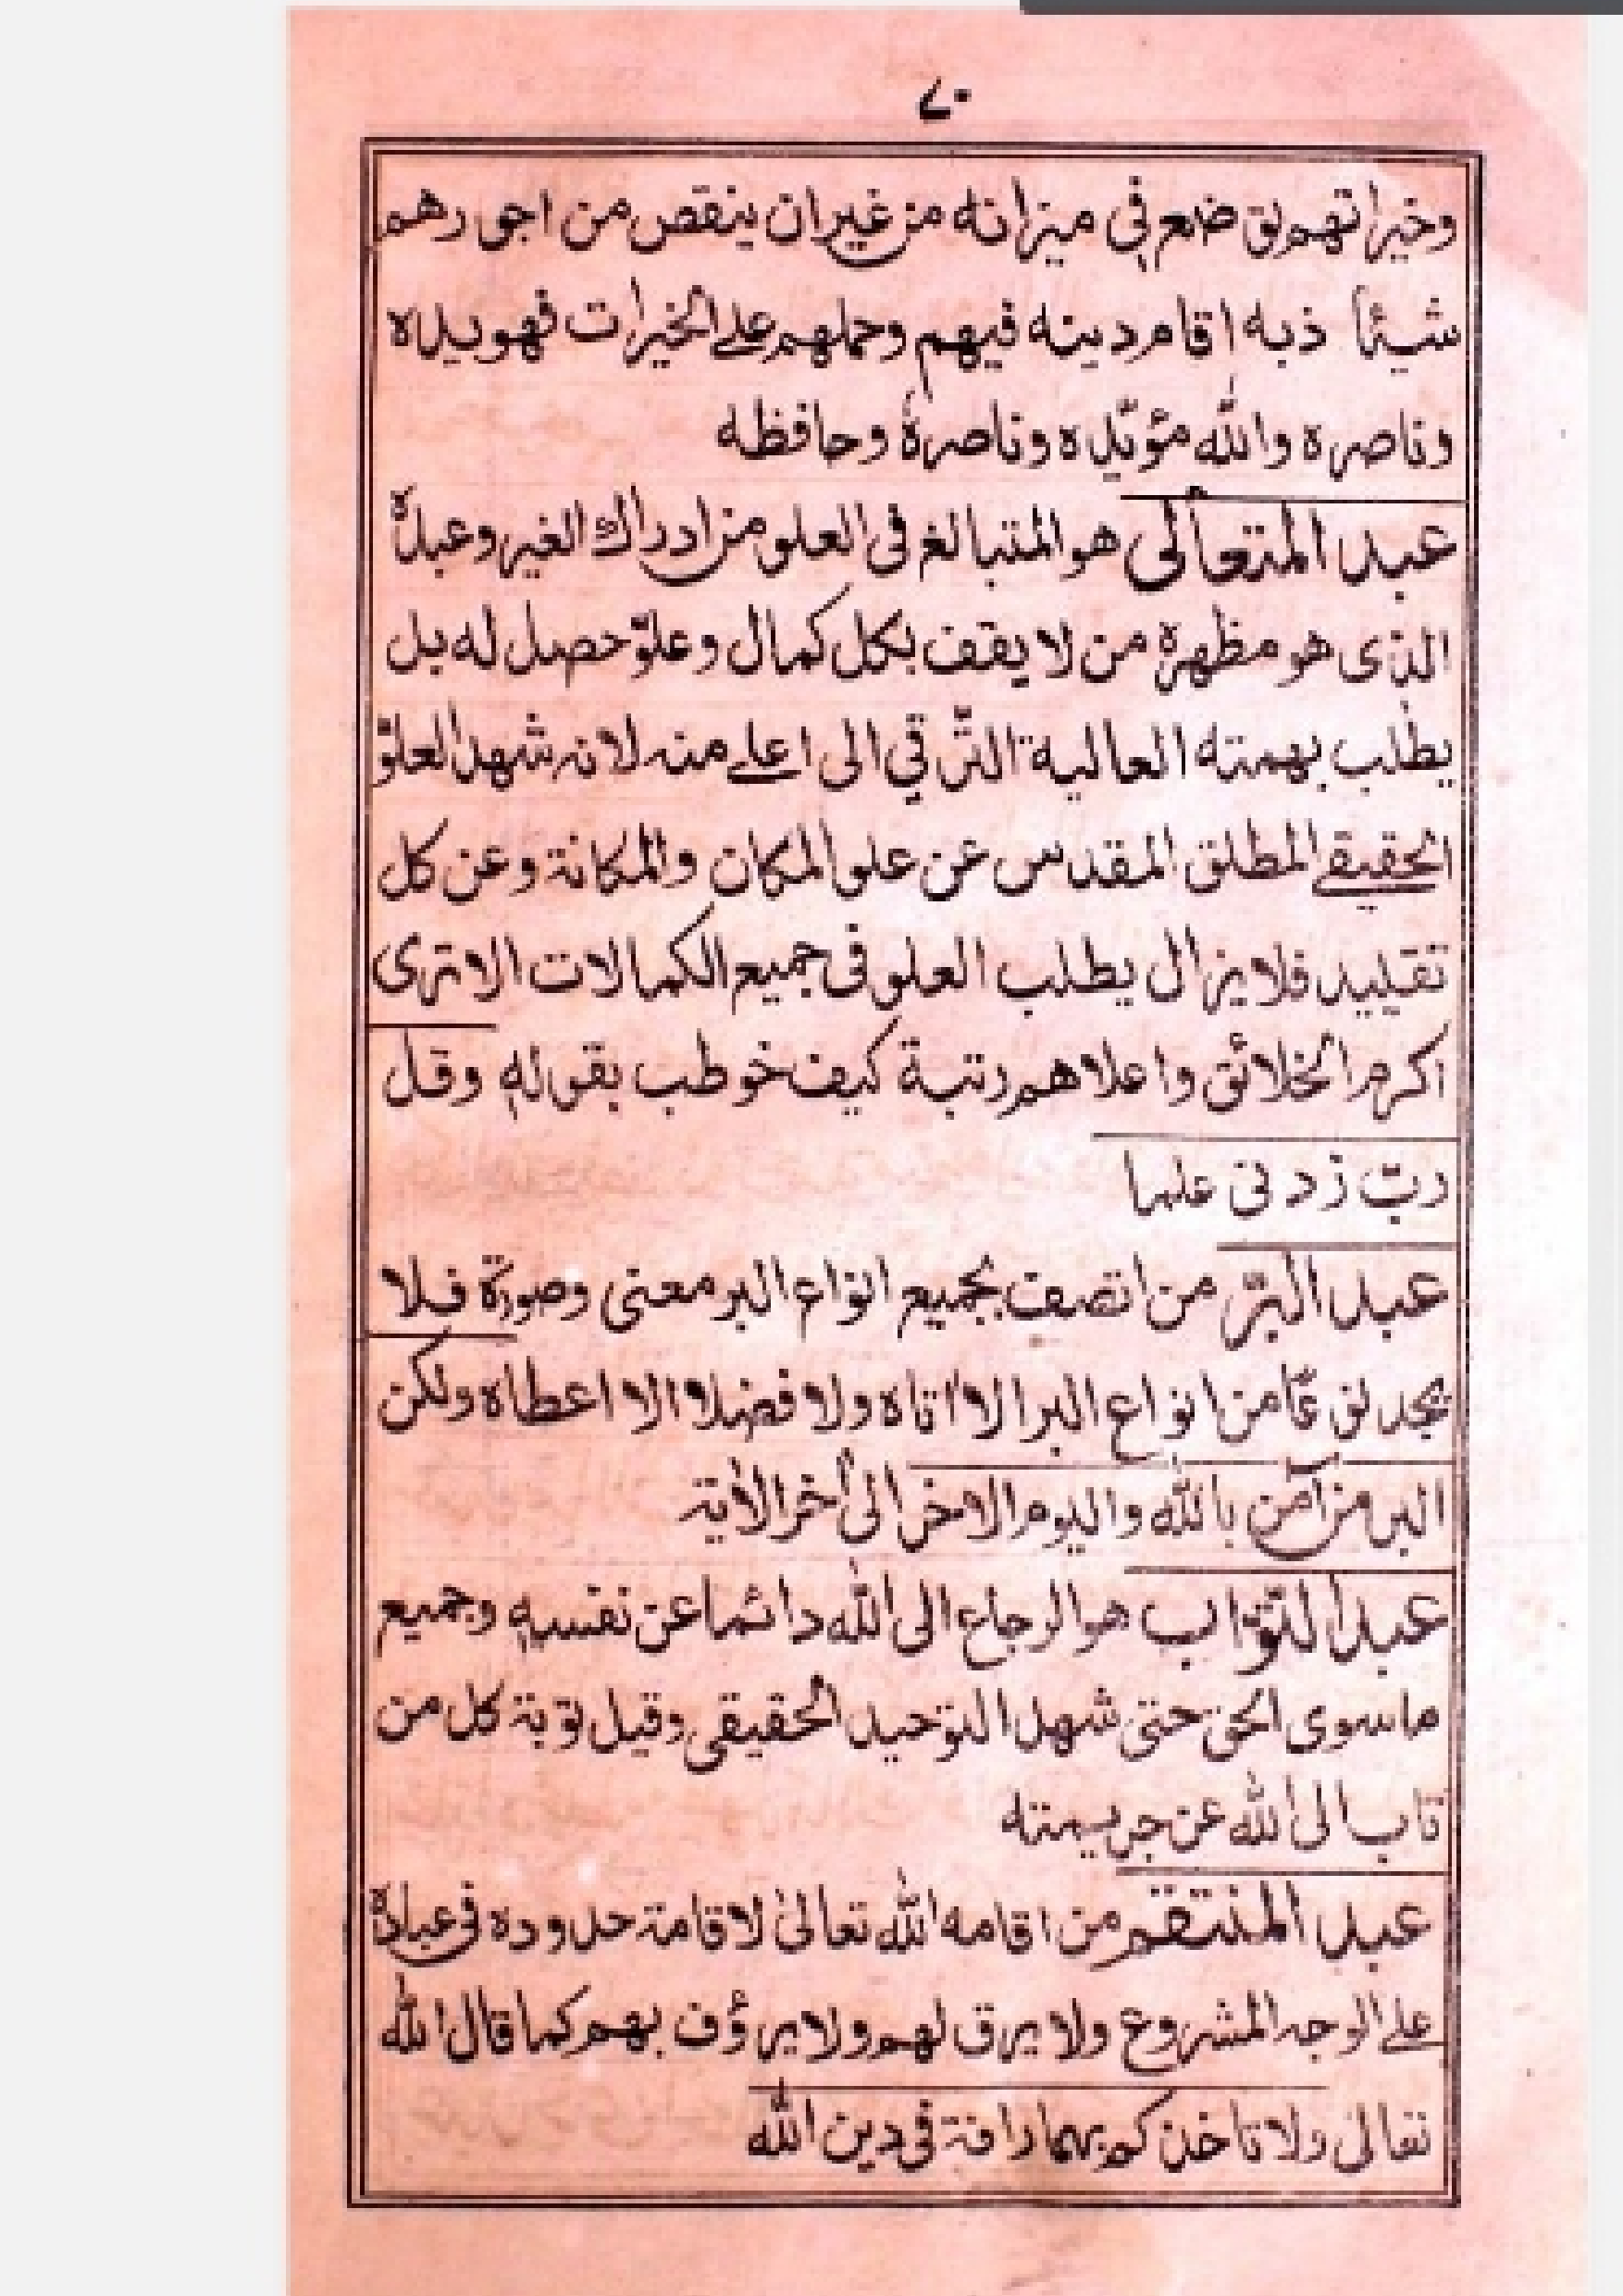 ٧٠
وخيراتهم توضع في ميزانه من غير ان ينقص من اجورهم
شيئا ذبه اقام دينه فيهم وحملهم على الخيرات فهو يده
وناصره والله مؤيده وناصره وحافظه
عبد المتعالى هو المتبالغ فى العلو من ادراك الغير وعبده
الذى هو مظهره من لا يقف بكل كمال وعلوّ حصل له بل
يطلب بهمته العالية الترّقي الى اعلى منه لانه شهد العلوّ
الحقيقى المطلق المقدس عن علو المكان والمكانة وعن كل
تقليد فلا يزال يطلب العلو فى جميع الكمالات الا ترى
اكرم الخلائق واعلاهم رتبة كيف خوطب بقوله وقل
ربّ زدنى علما
عبد البرّ من اتصف بجميع انواع البر معنى وصورة فلا
يجد نوعّا من انواع البر الا اتاه ولا فضلا الا اعطاه ولكن
البر من آمن بالله واليوم الاخر الى أخر الأية
عبد التوّاب هو الرجاع الى الله دائما عن نفسه وجميع
ما سوى الحق حتى شهد التوحيد الحقيقى وقيل توبة كل من
تاب الى الله عن جريمته
عبد المنتقم من اقامه الله تعالى لاقامة حدوده فى عباده
على الوجه المشروع ولا يرق لهم ولا يرؤف بهم كما قال الله
تعالى ولا تاخذ كم بهما رافة فى دين الله